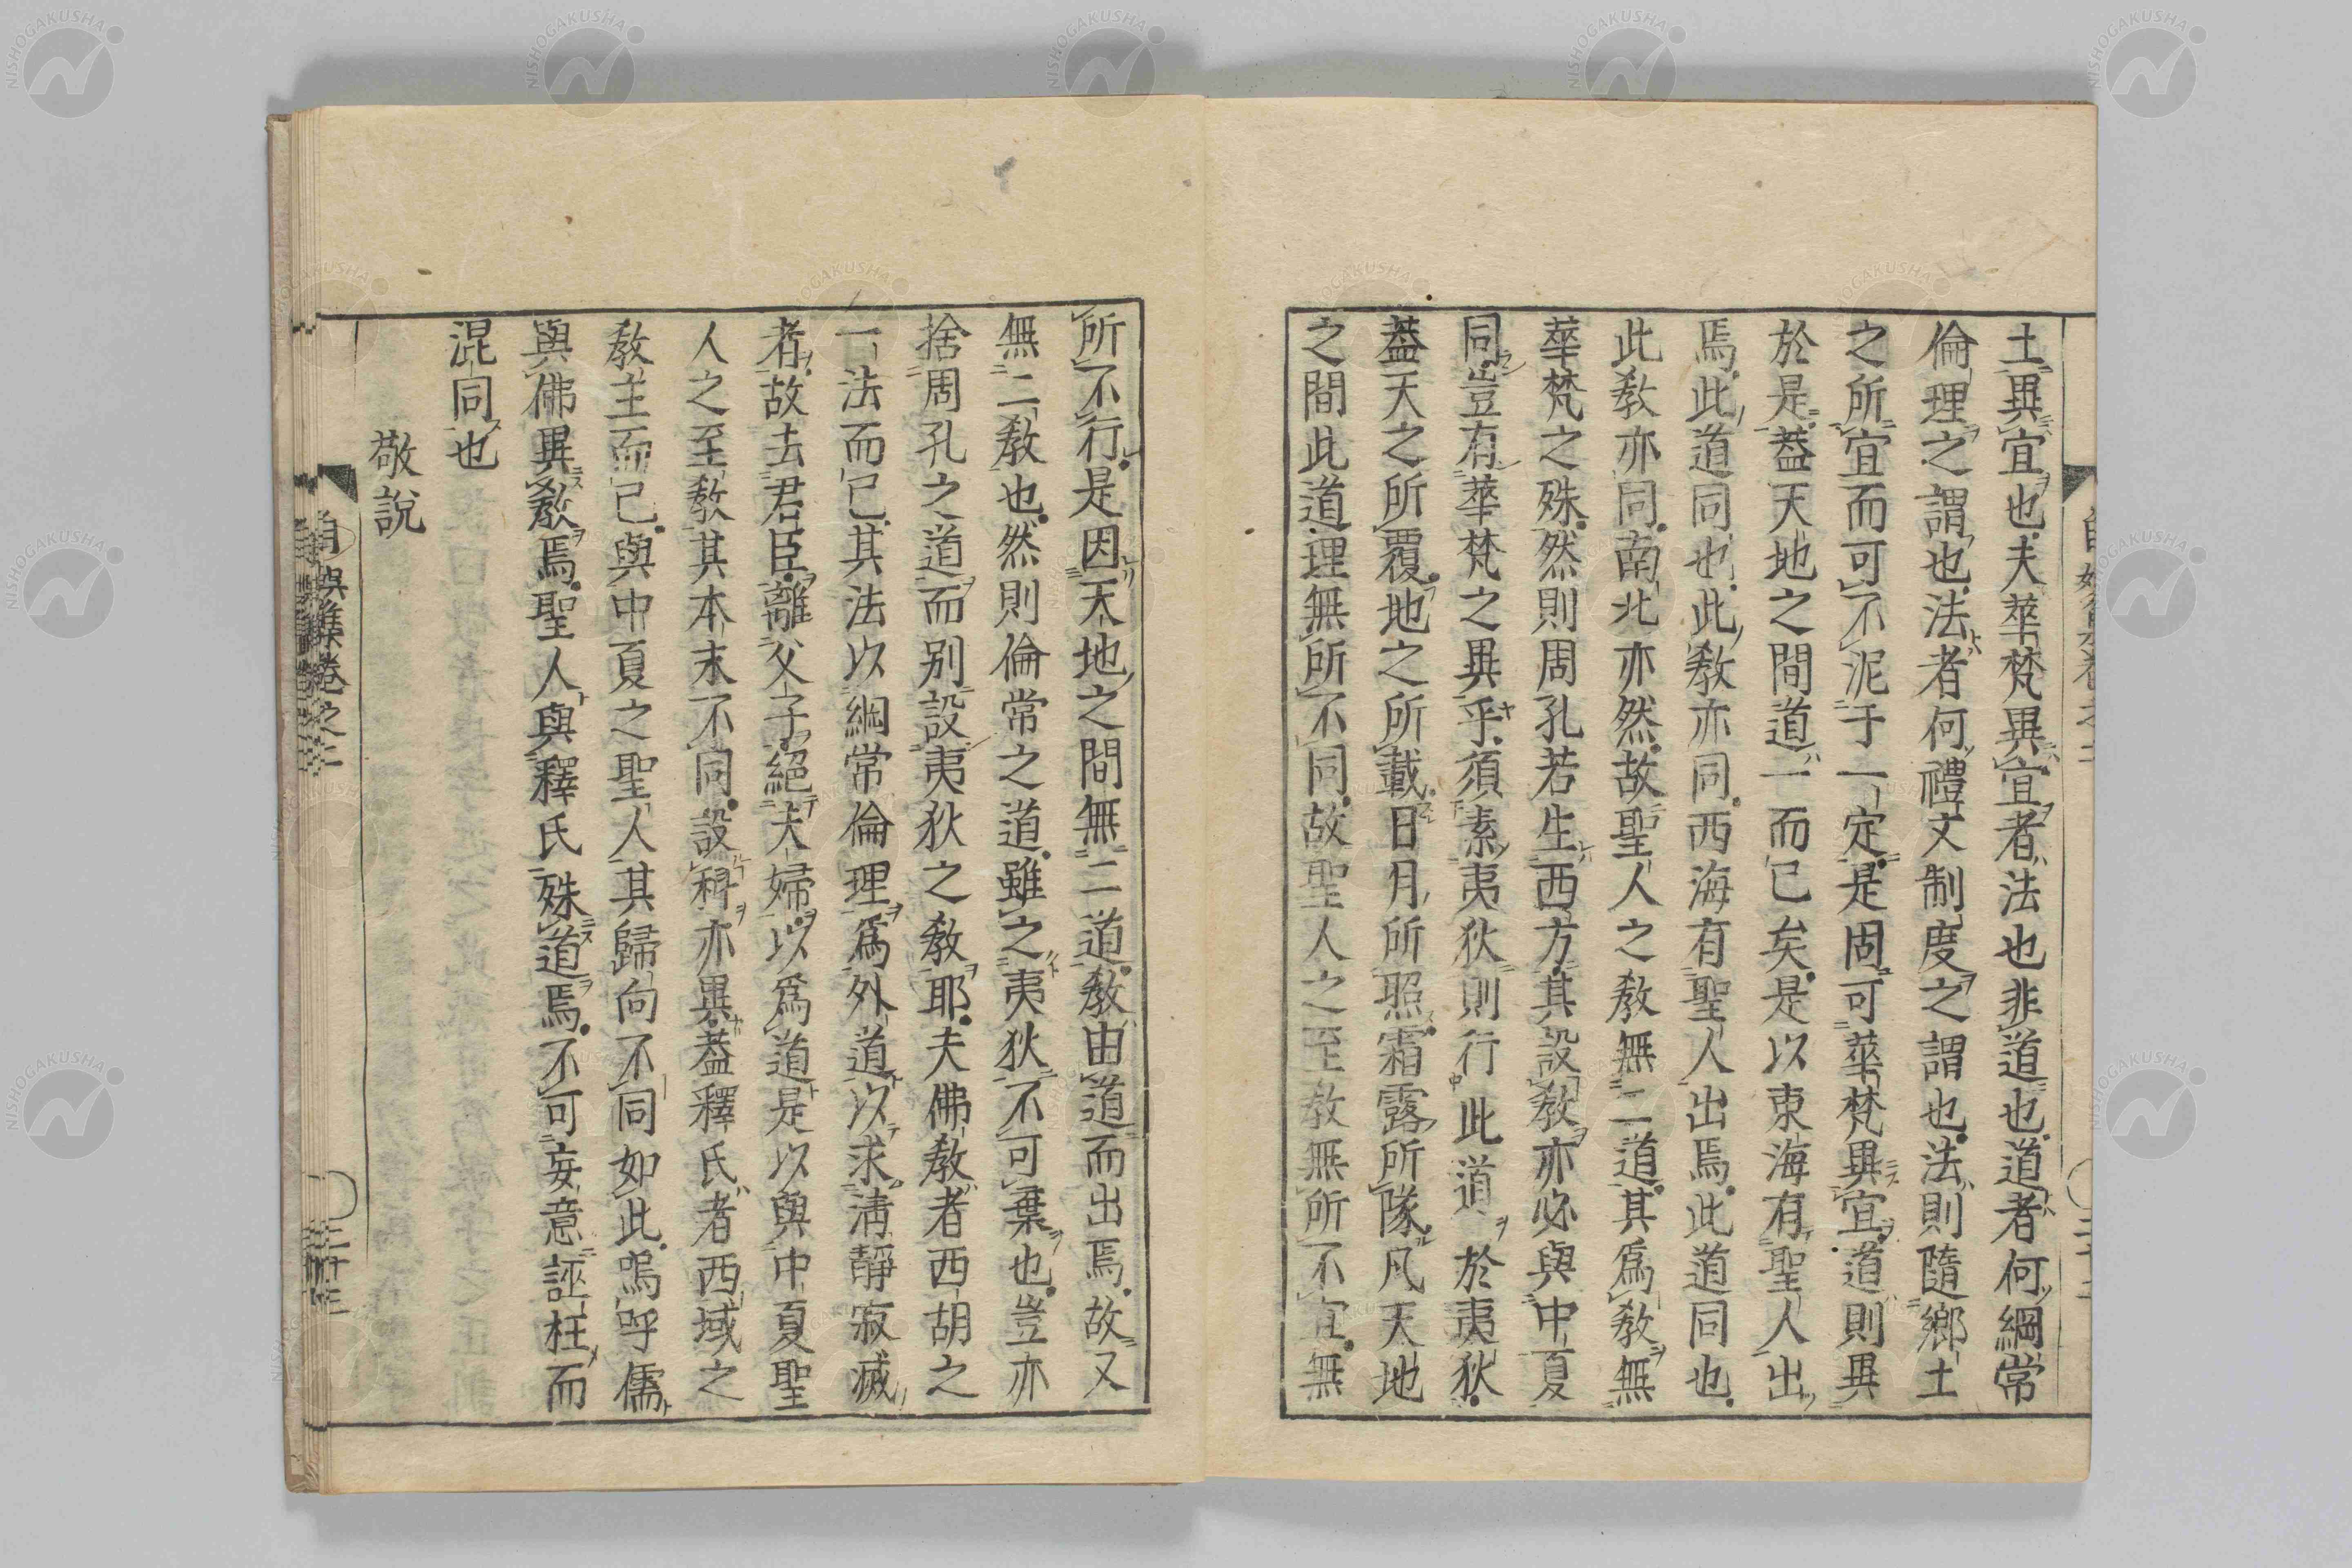 土異宜也夫華梵異宜者法也非道也道者何綱常
倫理之謂也法者何禮文制度之謂也法則隨鄉土
之所宜而可不泥于一定是固可華梵異宜道則異
於是蓋天地之間道一而已矣是以東海有聖人出
焉此道同也此教亦同西海有聖人出焉此道同也
此教亦同南北亦然故聖人之教無二道其爲教無
華梵之殊然則周孔若生西方其設教亦必與中夏
同豈有華梵之異乎須素夷狄則行此道於夷狄
蓋天之所覆地之所載日月所照霜露所隊凡天地
之間此道理無所不同故聖人之至教無所不宜無
所不行是因天地之間無二道教由道而出焉故又
無二教也然則倫常之道雖之夷狄不可棄也豈亦
捨周孔之道而別設夷狄之教耶夫佛教者西胡之
一法而已其法以綱常倫理爲外道以求淸靜寂滅
者故去君臣離父子絕夫婦以爲道是以與中夏聖
人之至教其本末不同設科亦異蓋釋氏者西域之
教主而已與中夏之聖人其歸向不同如此嗚呼儒
與佛異教焉聖人與釋氏殊道焉不可妄意誣枉而
混同也
敬說
自娛集卷之二
三十三
NISHOGAKUSHA